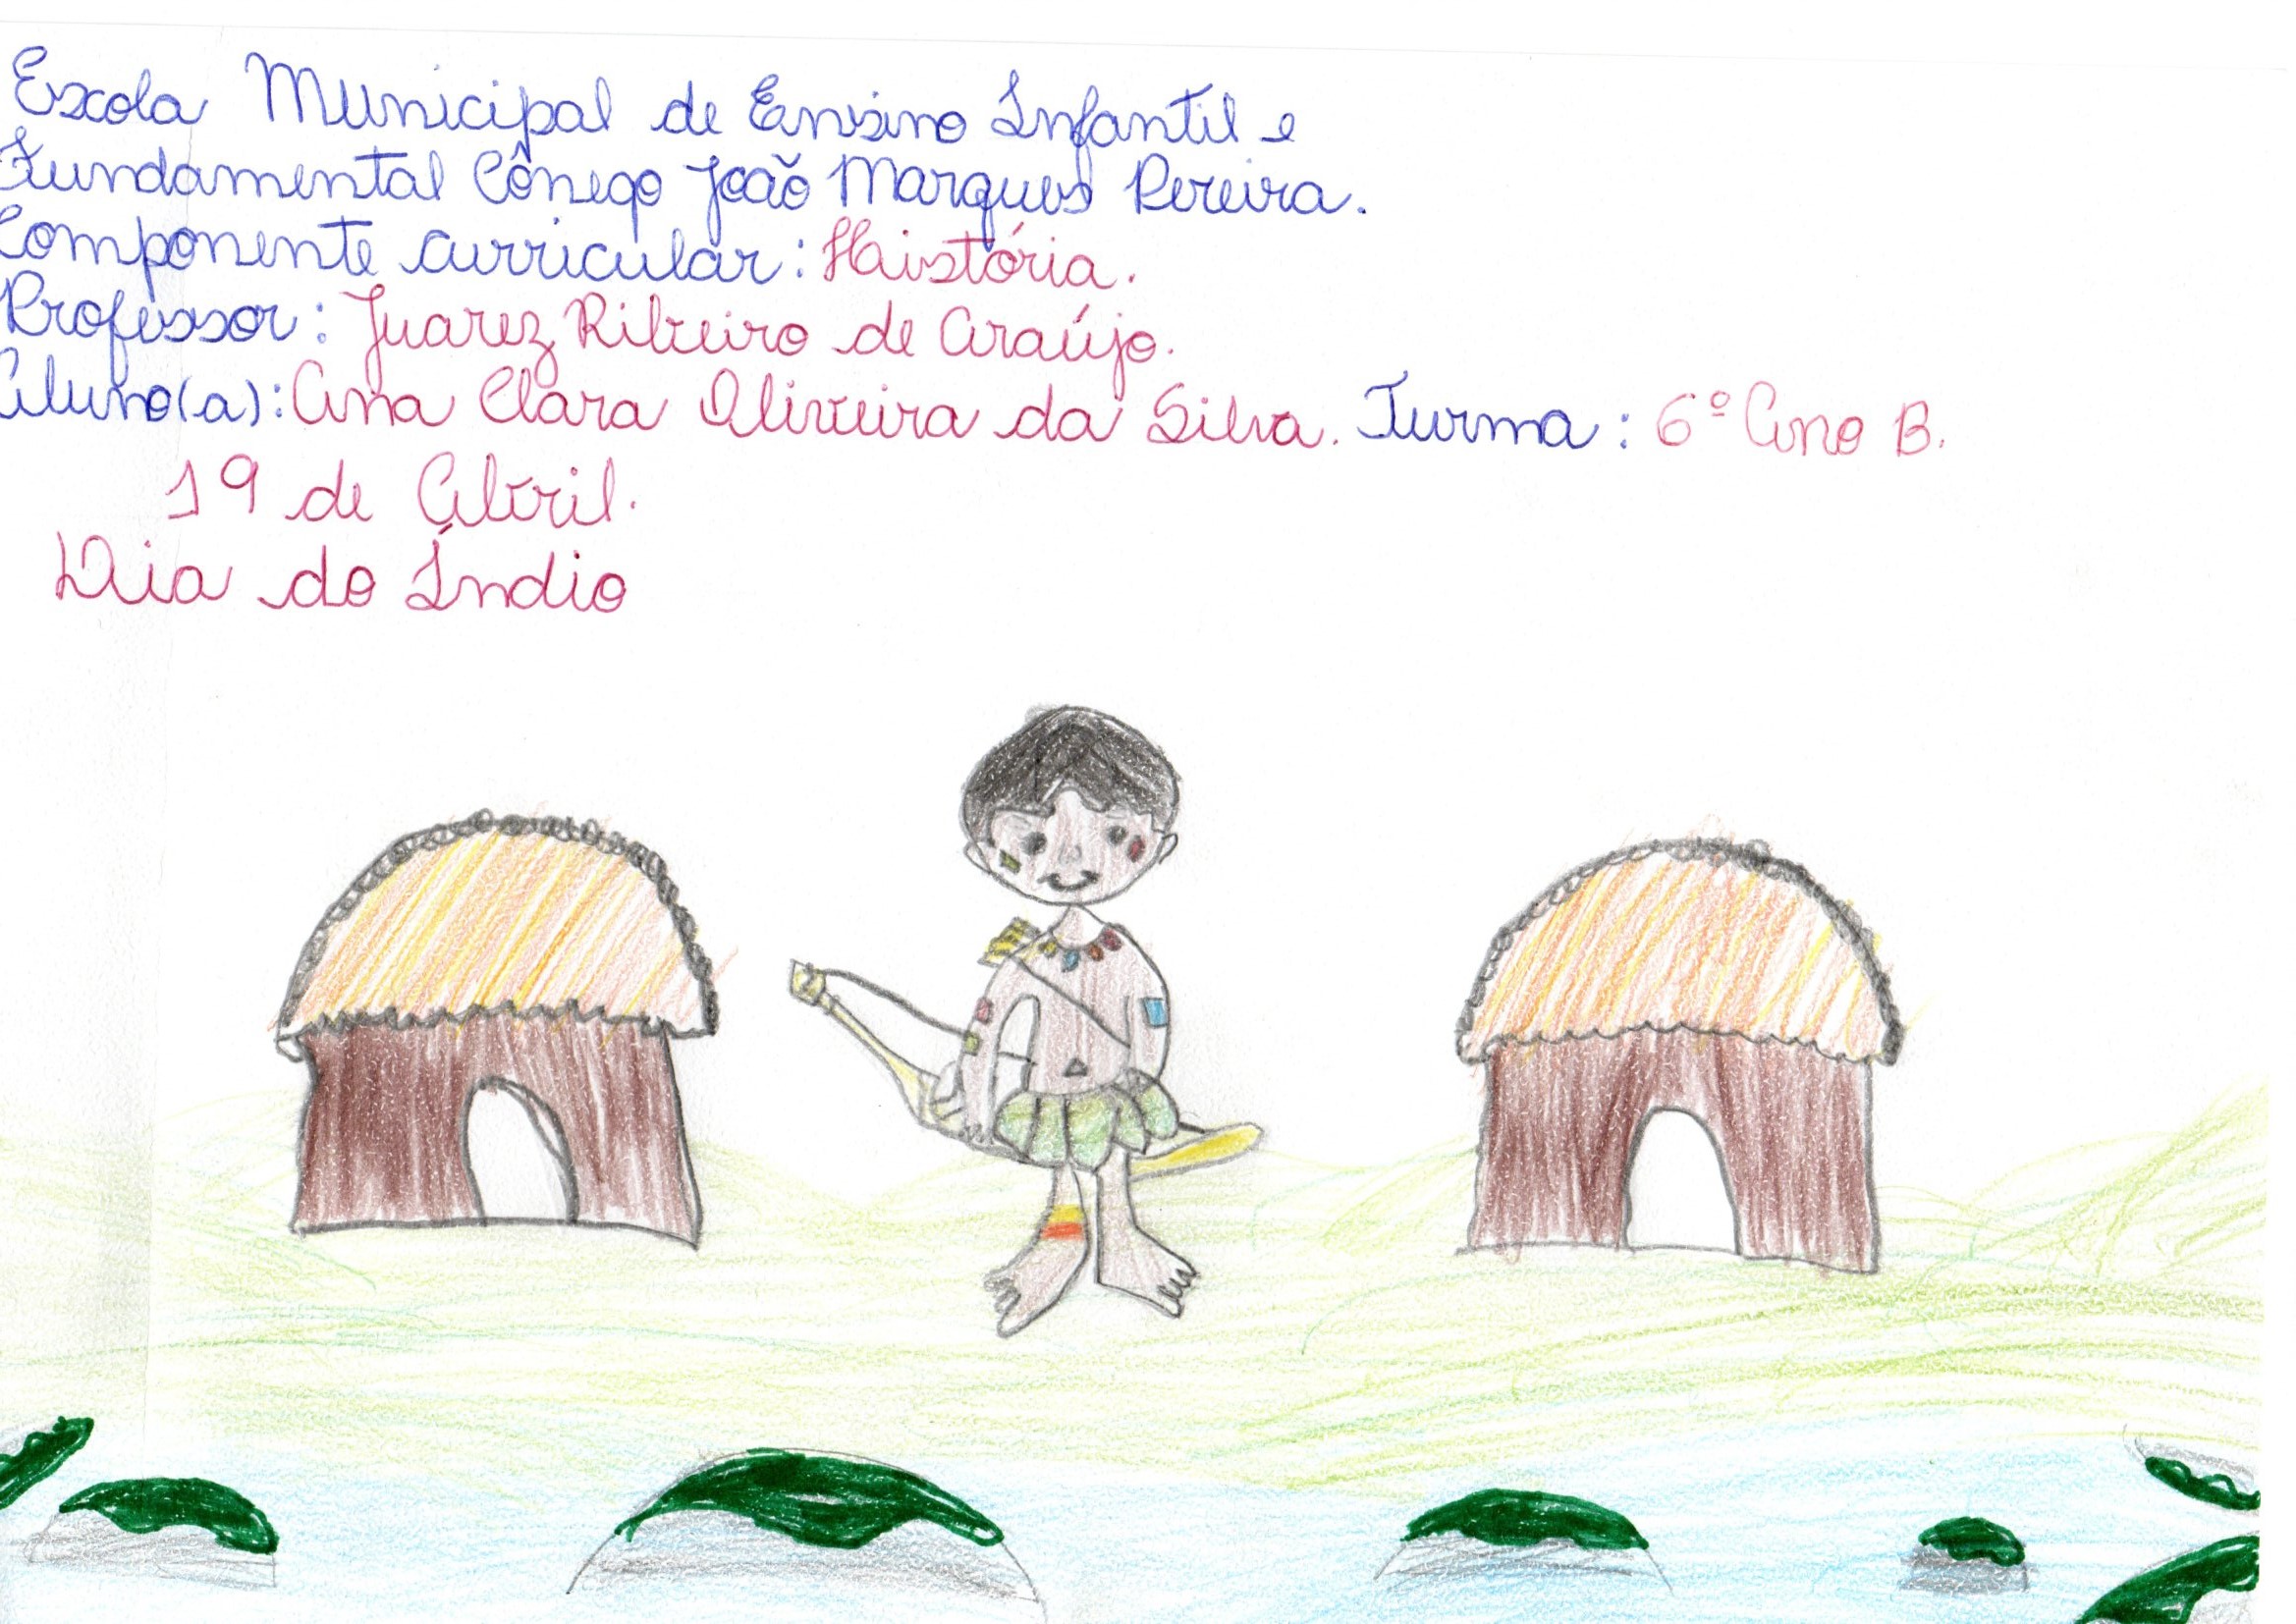 Escola Municipal de Ensino Infantil e
Fundamental Cônego João Marques Pereira.
Componente curricular: História.
Professor: Juarez Ribeiro de Araújo.
Aluno(a): Ana Clara Oliveira da Silva. Turma: 6º Ano B.
19 de Abril.
Dia do Índio